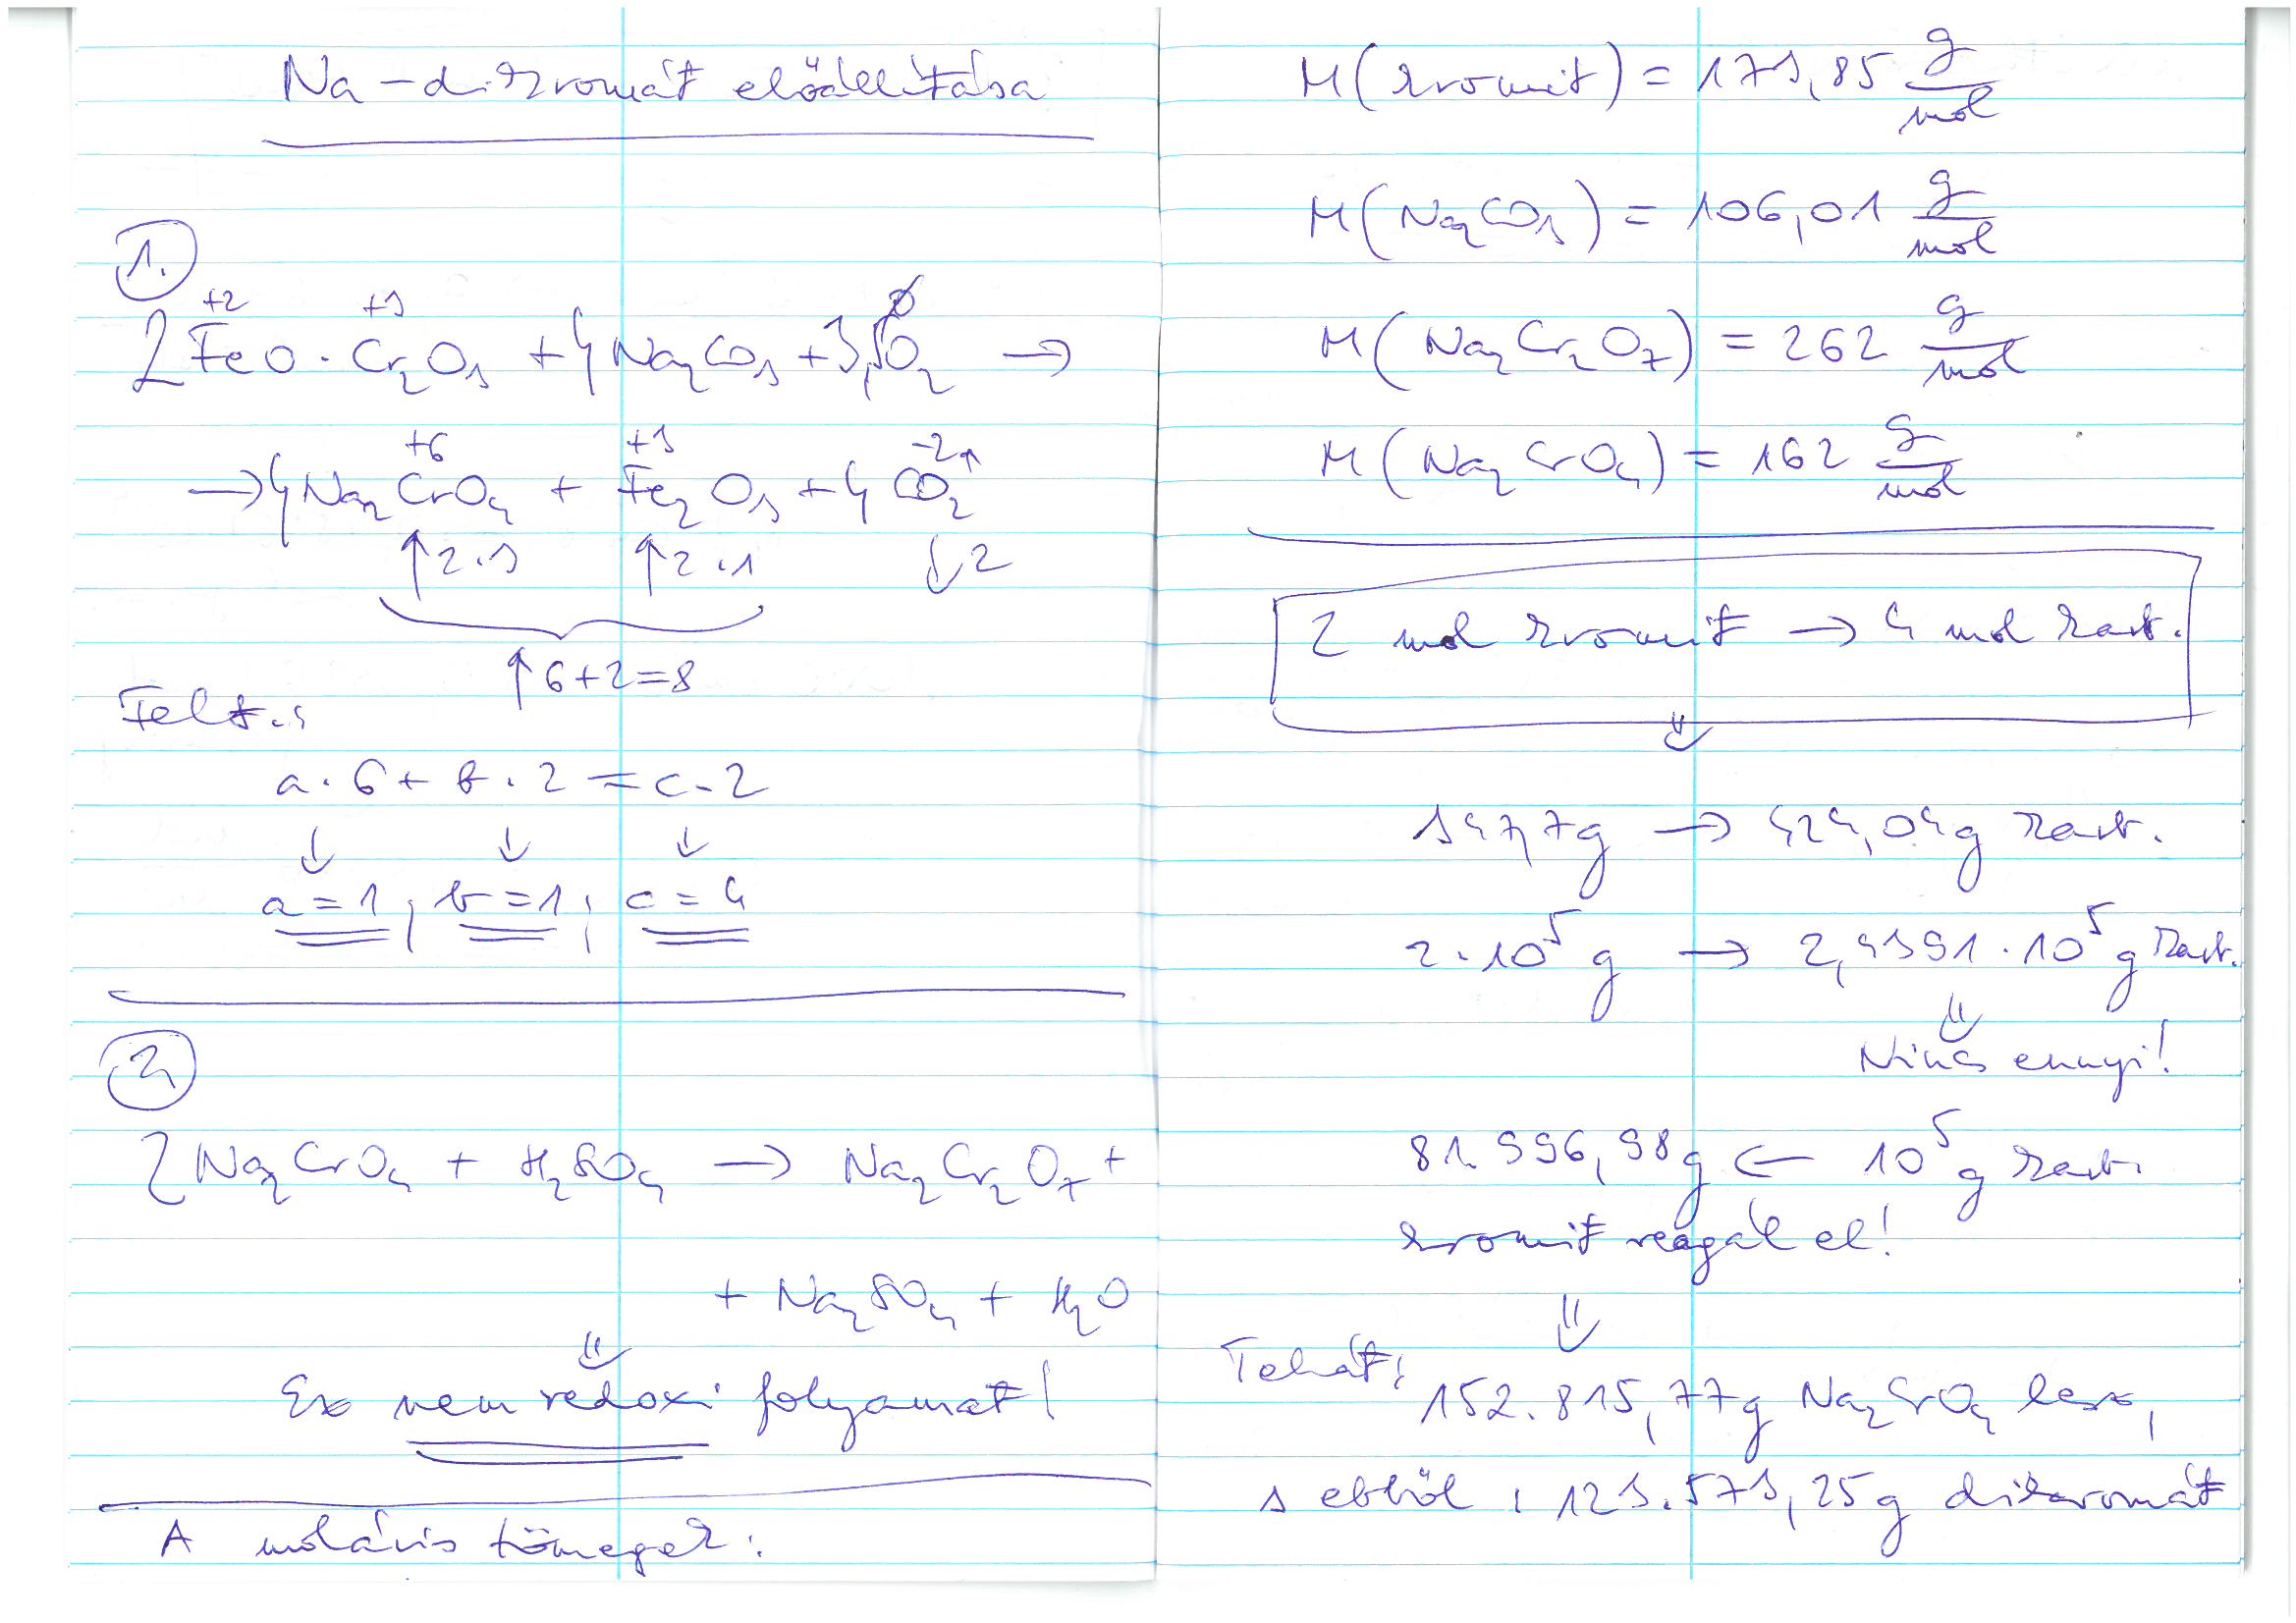 Na-dikromát előállítása
1.
+2 +3 0
2FeO·Cr₂O₃ + 4Na₂CO₃ + 3,5O₂ →
+6 +3 -2
→ 4Na₂CrO₄ + Fe₂O₃ + 4CO₂↑
↑2·3 ↑2·1 ↓2
↑6+2=8
Felt.:
a·6 + b·2 = c·2
↓ ↓ ↓
a=1; b=1; c=4
2,
2Na₂CrO₄ + H₂SO₄ → Na₂Cr₂O₇ +
+ Na₂SO₄ + H₂O
⇓
Ez nem redoxi folyamat!
A moláris tömegek:
M(kromit) = 173,85 g/mol
M(Na₂CO₃) = 106,01 g/mol
M(Na₂Cr₂O₇) = 262 g/mol
M(Na₂CrO₄) = 162 g/mol
2 mol kromit → 4 mol karb.
⇓
347,7g → 424,04g karb.
2·10⁵ g → 2,4391·10⁵ g karb.
⇓
Nincs ennyi!
81.996,98g ← 10⁵ g karb.
kromit reagál el!
⇓
Tehát:
152.815,77g Na₂CrO₄ lesz,
s ebből: 123.573,25g dikromát